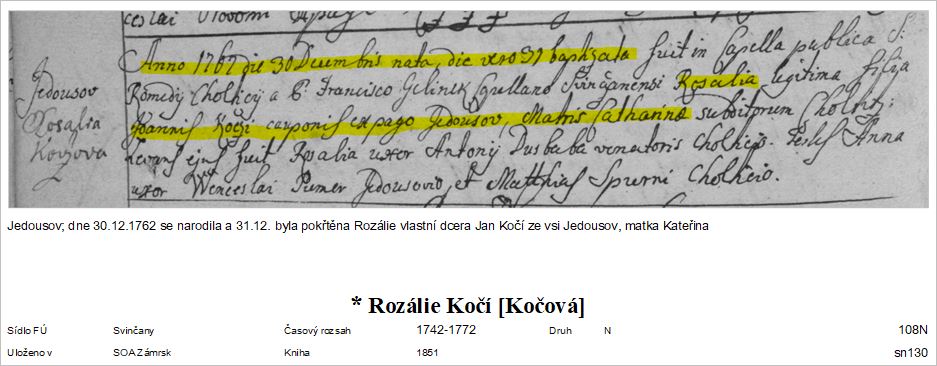 Jedousov
Rosalia
Koczova
Anno 1767 die 30 Decembris nata, die vero 31 baptisata fuit in Capella publica S:
Romedy Cholticij a P. Francisco Gelinek Capellano Svinczanensi Rosalia legitima filia
Joannis Koczi ex pago Jedousov, Matris Catharinae subditorum Choltic:
Levans ejus fuit Rosalia uxor Antonij Dusbaba venatoris Choltic. Testes Anna
uxor Wenceslai Pumer Jedousovio, et Matthias Spurni Choltic.
Jedousov; dne 30.12.1762 se narodila a 31.12. byla pokřtěna Rozálie vlastní dcera Jan Kočí ze vsi Jedousov, matka Kateřina
* Rozálie Kočí [Kočová]
Sídlo FÚ Svinčany Časový rozsah 1742-1772 Druh N 108N
Uloženo v SOA Zámrsk Kniha 1851 sn130